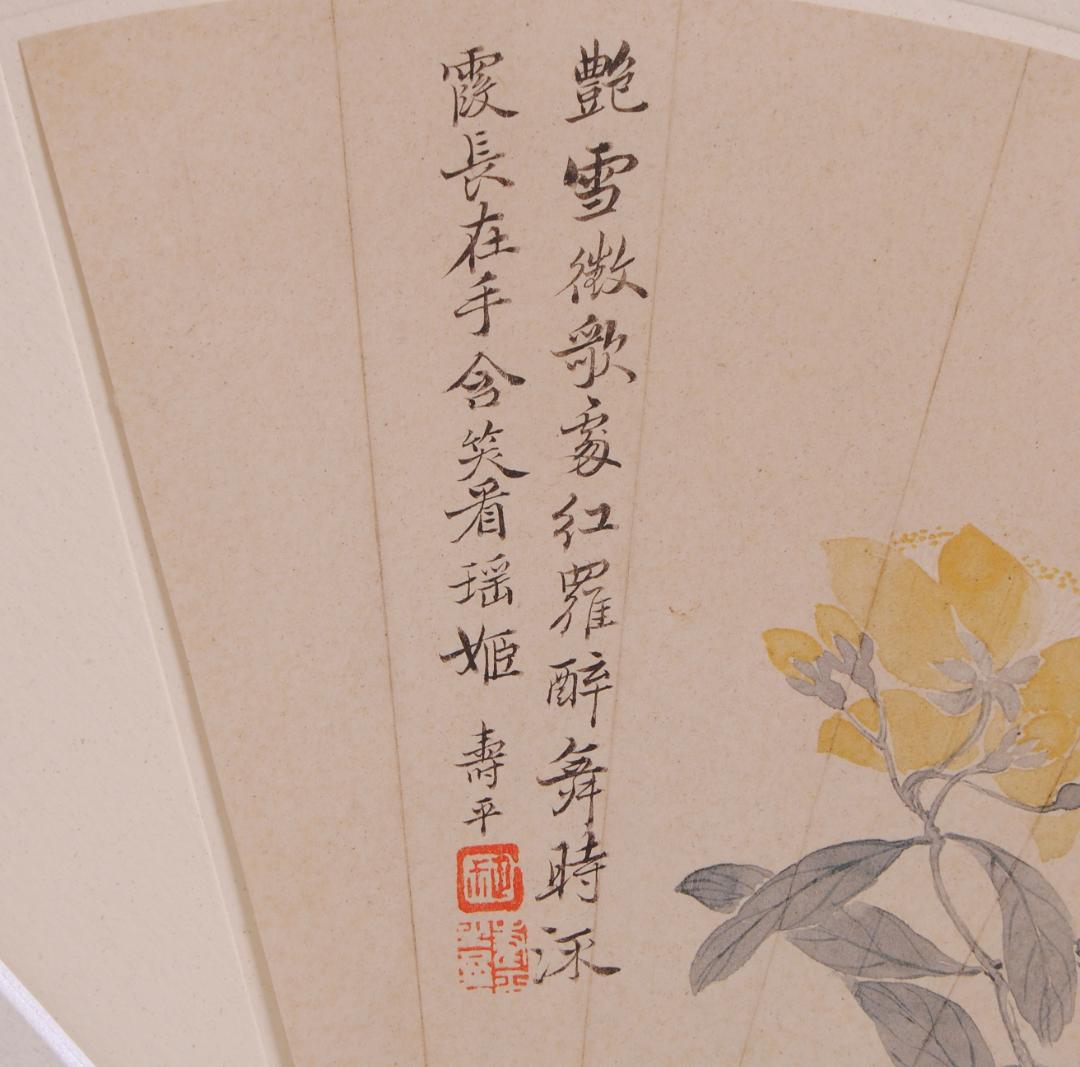 艷雪徵歌處紅羅醉舞時深
霞長在手含笑看瑶姬
壽平